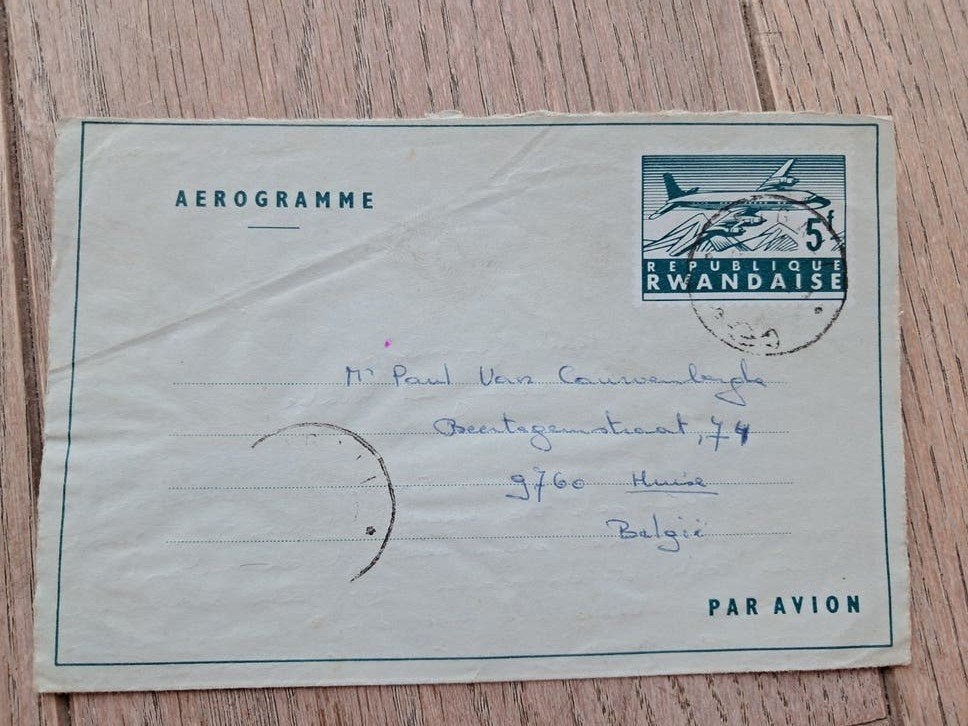 AEROGRAMME
5f
REPUBLIQUE
RWANDAISE
Mr Paul Van Cauwenberghe
Beertegemstraat, 74
9760 Huise
België
PAR AVION